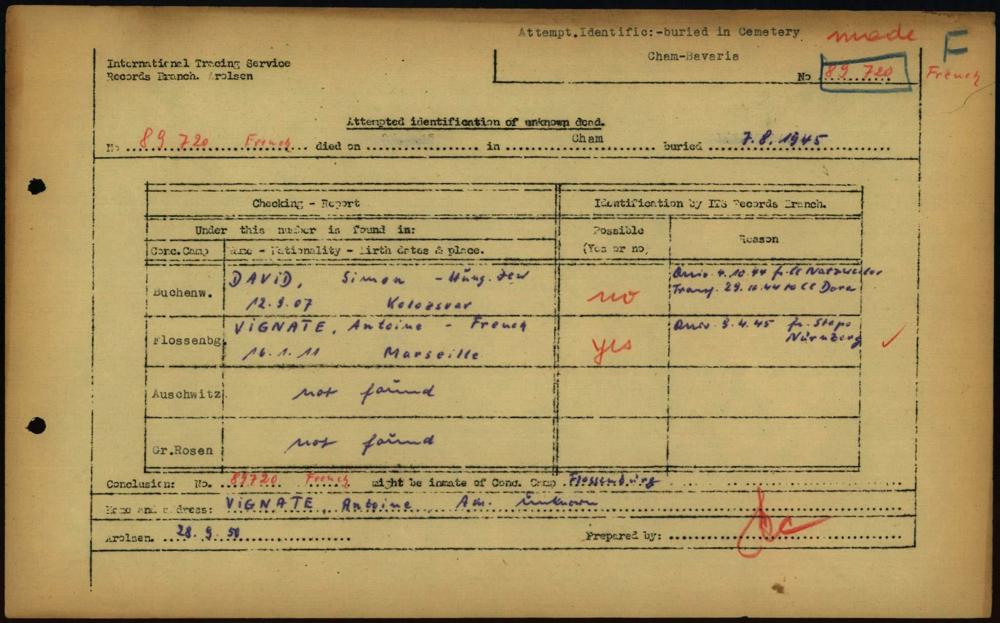 Attempt.Identific:-buried in Cemetery made F
Cham-Bavaria
International Tracing Service
Records Branch. Arolsen
No 89 720 French
Attempted identification of unknown dead.
No 89 720 French died on in Cham buried 7.8.1945
Checking - Report Identification by ITS Records Branch.
Under this number is found in: Possible (Yes or no) Reason
Conc.Camp Name - Nationality - Birth dates & place.
Buchenw. DAVID, Simon - Hung. Jew no Arriv. 4.10.44 fr. CC Natzweiler
12.9.07 Kolozsvar Transf. 29.10.44 to CC Dora
Flossenbg. VIGNATE, Antoine - French yes Arriv. 9.4.45 fr. Stapo
16.1.11 Marseille Nürnberg
Auschwitz not found
Gr.Rosen not found
Conclusion: No. 89720 French might be inmate of Conc. Camp Flossenbürg
Name and address: VIGNATE, Antoine Adr. unknown
Arolsen. 28.9.50 Prepared by: